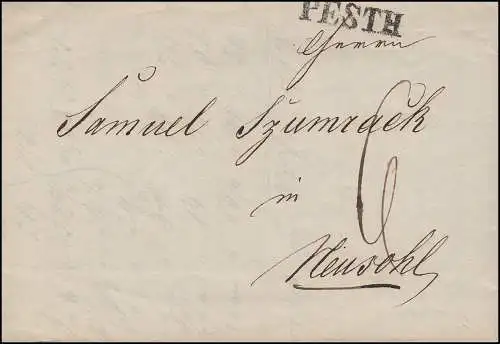 PESTH
Herrn
Samuel Szumrack
6
in
Neusohl